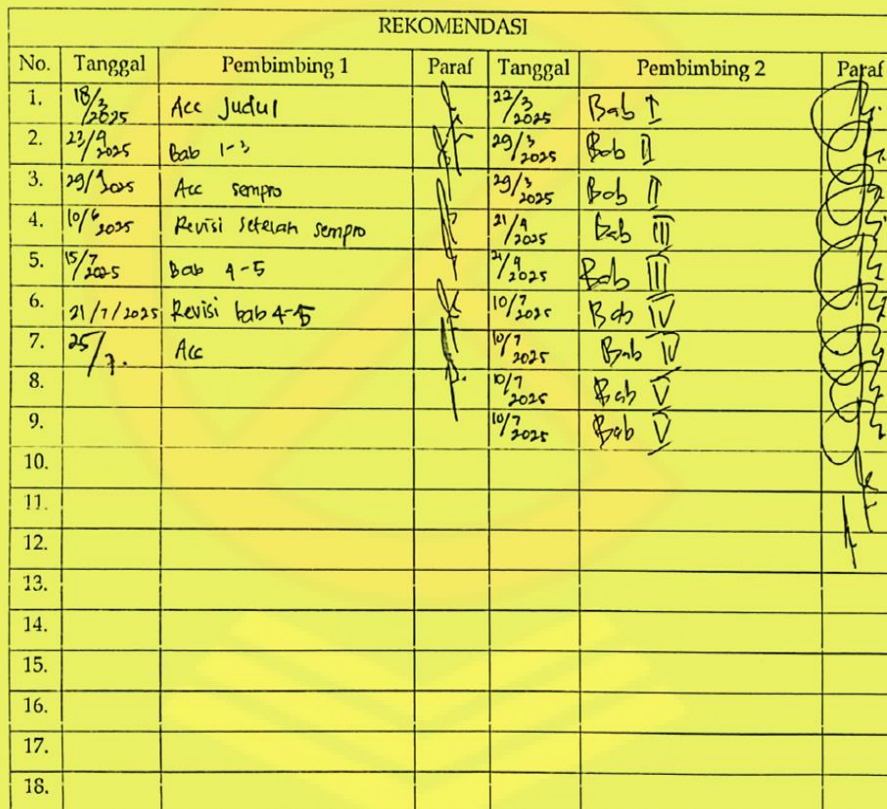 REKOMENDASI
No. Tanggal Pembimbing 1 Paraf Tanggal Pembimbing 2 Paraf
1. 18/3 2025 Acc Judul 22/3 2025 Bab I
2. 23/4 2025 Bab 1-3 29/3 2025 Bab II
3. 29/4 2025 Acc sempro 29/3 2025 Bab II
4. 10/6 2025 Revisi setelah sempro 21/4 2025 Bab III
5. 15/7 2025 Bab 4-5 21/4 2025 Bab III
6. 21/7/2025 Revisi bab 4-5 10/7 2025 Bab IV
7. 25/7. Acc 10/7 2025 Bab IV
8. 10/7 2025 Bab V
9. 10/7 2025 Bab V
10.
11.
12.
13.
14.
15.
16.
17.
18.